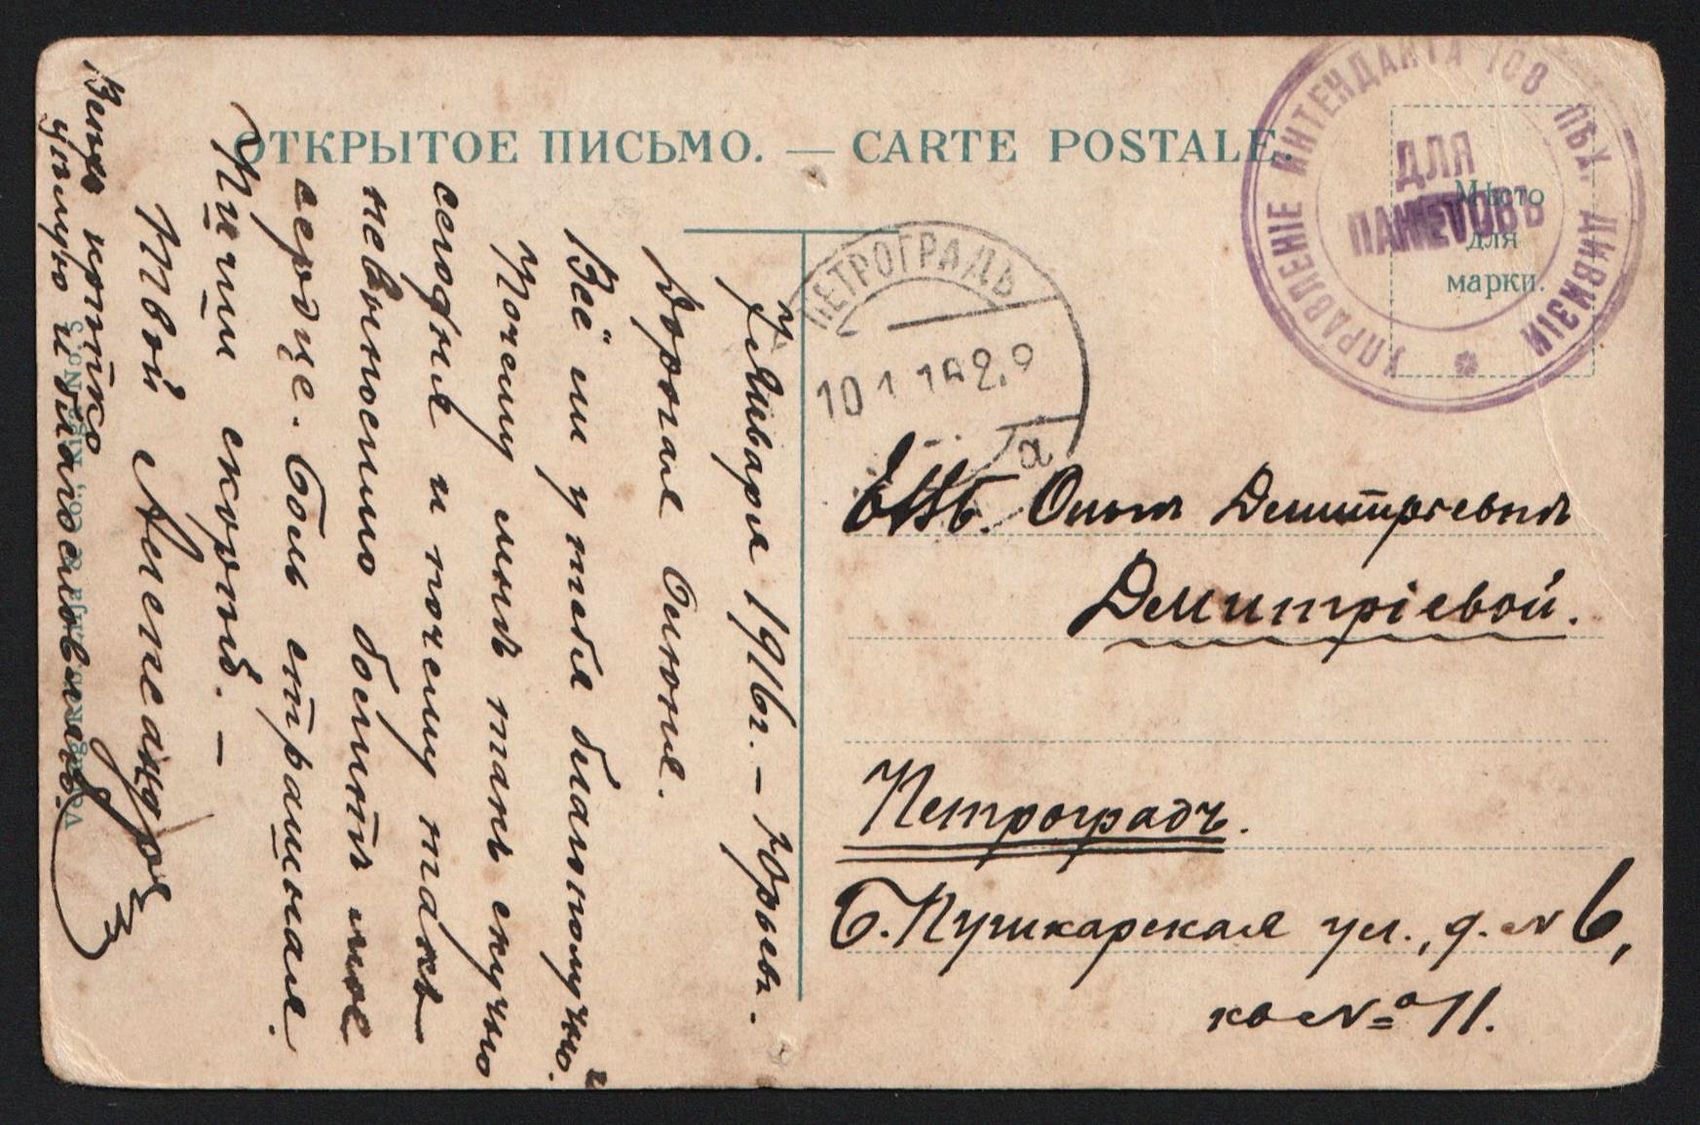 ОТКРЫТОЕ ПИСЬМО. — CARTE POSTALE.
УПРАВЛЕНІЕ ИНТЕНДАНТА 108 ПѢХ. ДИВИЗІИ
ДЛЯ
ПАКЕТОВЪ
Мѣсто
для
марки.
ПЕТРОГРАДЪ
10 1 16
а
7 Января 1916 г. – Юрьевъ.
Дорогая Олюня.
Всё ли у тебя благополучно?
Почему мнѣ такъ скучно
сегодня и почему такъ
невыносимо болитъ мое
сердце. Боль страшная.
Пиши скорѣй. –
Твой Александръ
крѣпко
цѣлую и благословляю.
ЕВБ. Ольгѣ Дмитріевнѣ
Дмитріевой.
Петроградъ.
Б. Пушкарская ул., д. № 6,
кв № 11.